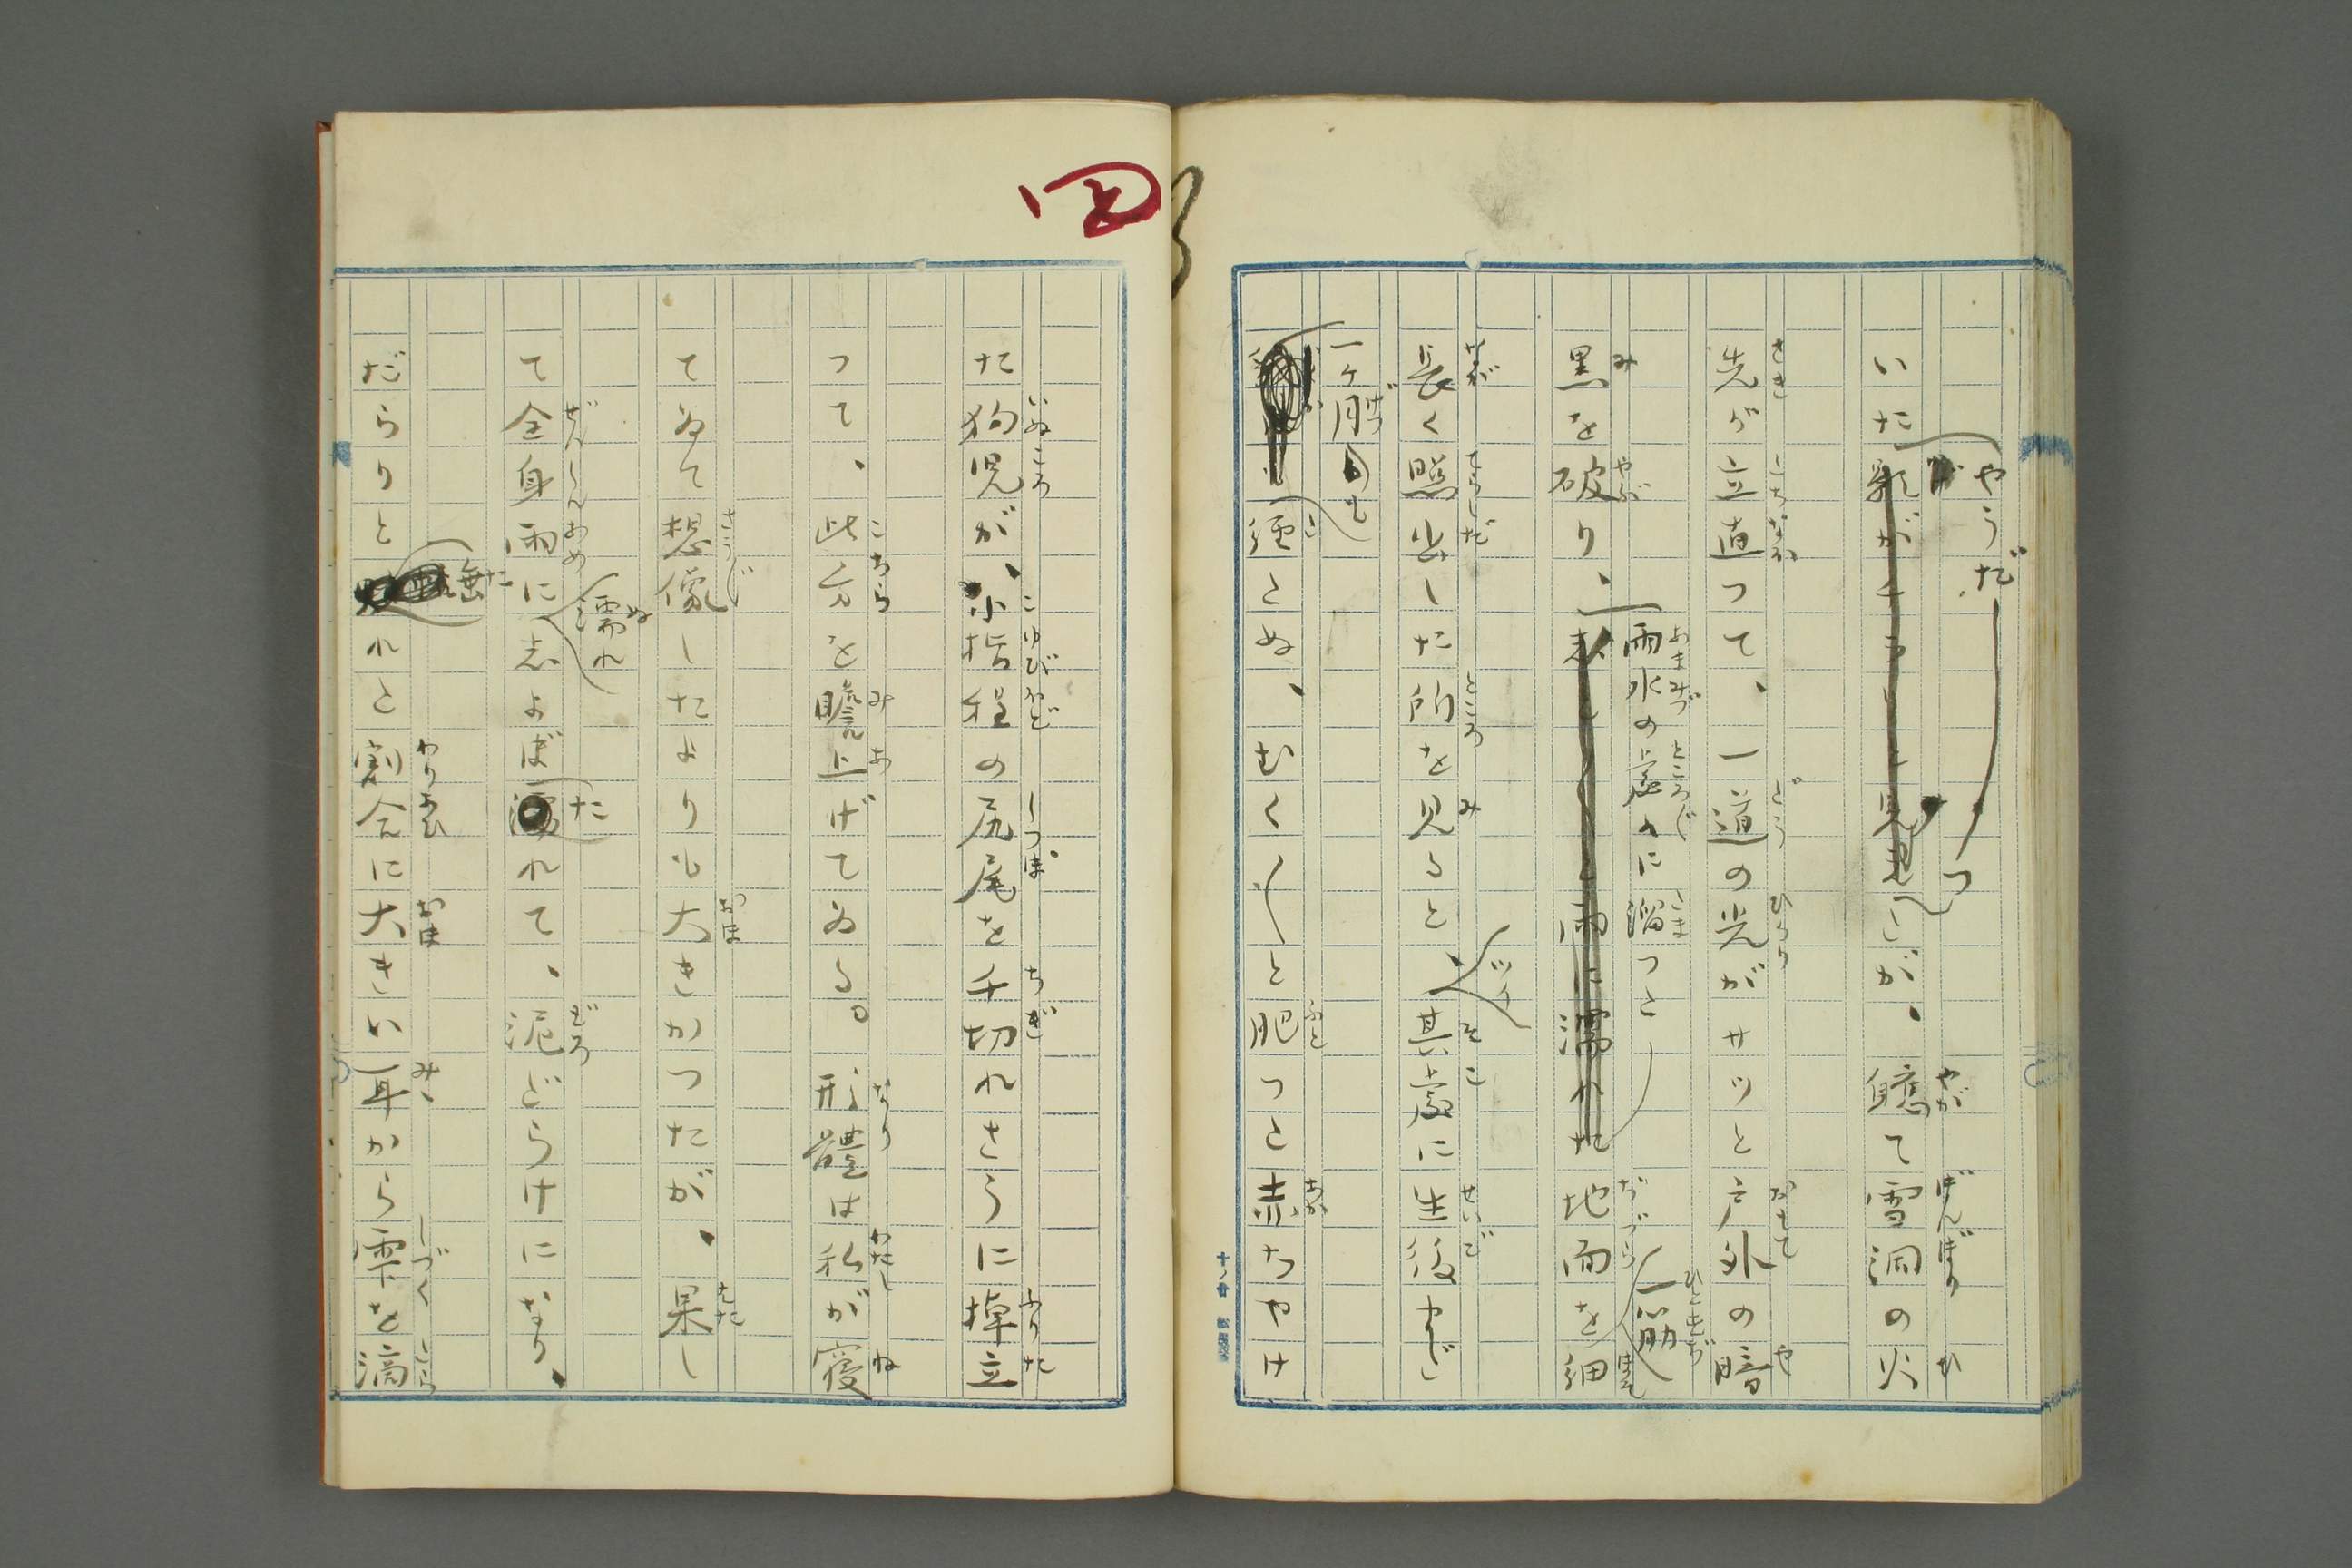 いたやうだつたが、軈て雪洞の火
先が立直つて、一道の光がサツと戸外の暗
黒を破り、雨水の処々に溜つた地面を一筋細
長く照出した所を見ると、ツイ其処に生後まだ
一ヶ月も経たぬ、むく〳〵と肥つた赤ちやけ
四
た狗児が、小指程の尻尾を千切れさうに掉立
つて、此方を瞻上げてゐる。形體は私が寝
てゐて想像したよりも大きかつたが、果し
て全身雨に濡れしよぼたれて、泥どらけになり、
だらりと垂れた割合に大きい耳から雫を滴